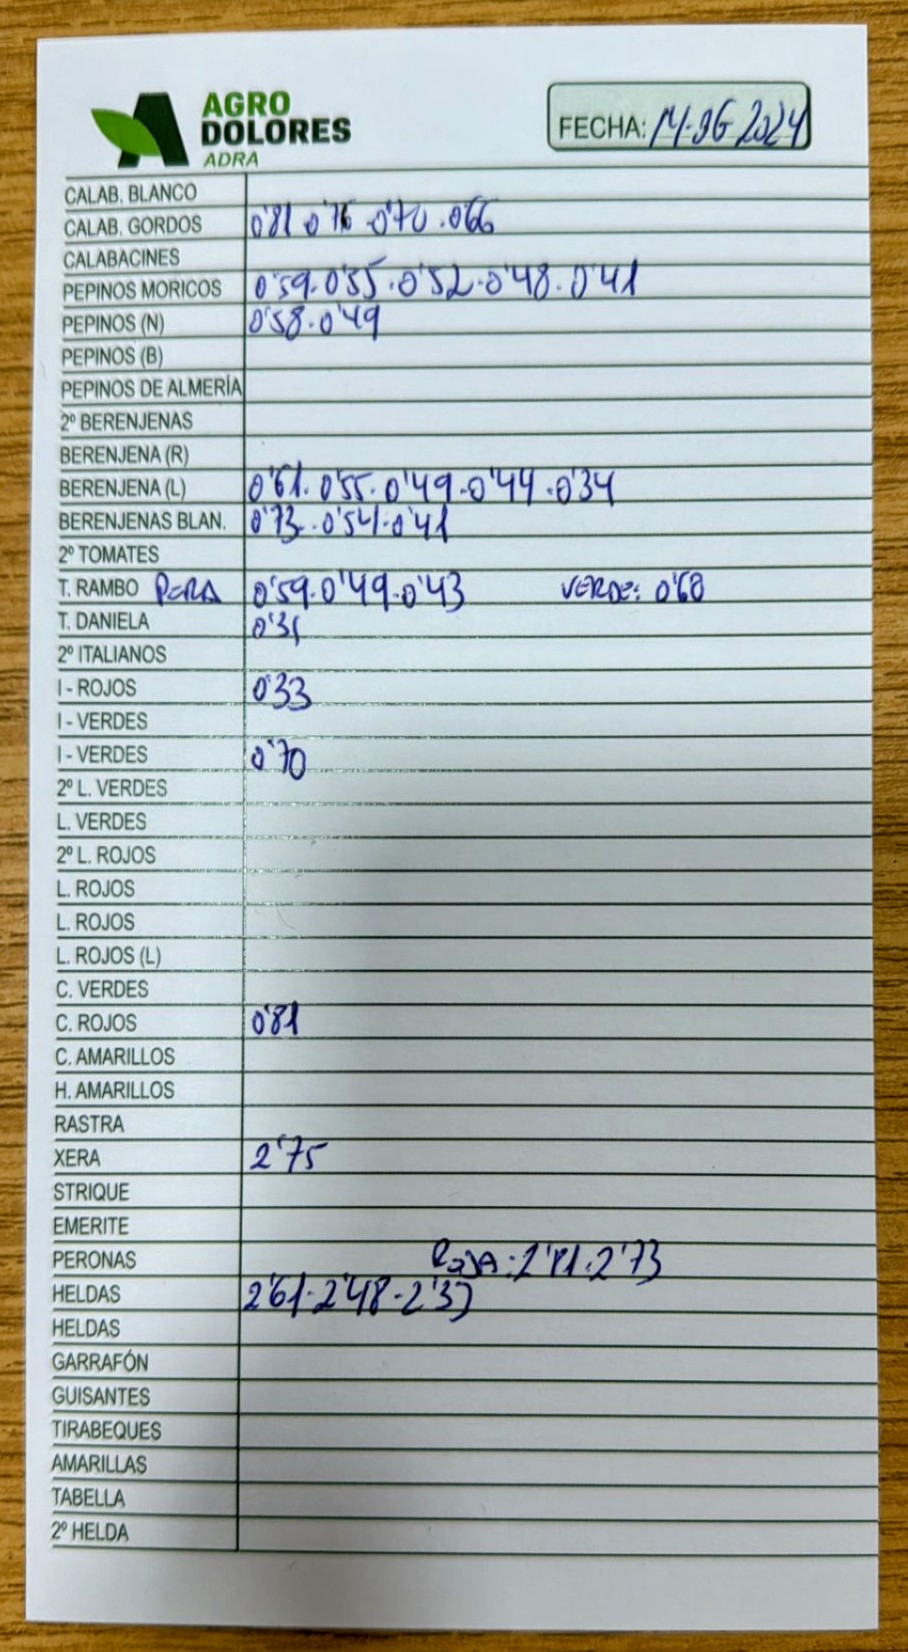 AGRO
DOLORES
ADRA
FECHA: 14-06 2024
CALAB. BLANCO
CALAB. GORDOS 0'81 0'76 0'70 . 0'66
CALABACINES
PEPINOS MORICOS 0'59. 0'55 . 0'52. 0'48. 0'41
PEPINOS (N) 0'58. 0'49
PEPINOS (B)
PEPINOS DE ALMERÍA
2º BERENJENAS
BERENJENA (R)
BERENJENA (L) 0'61. 0'55. 0'49. 0'44 . 0'34
BERENJENAS BLAN. 0'73 . 0'54. 0'41
2º TOMATES
T. RAMBO PERA 0'59. 0'49. 0'43 VERDE: 0'68
T. DANIELA
2º ITALIANOS
I - ROJOS 0'33
I - VERDES
I - VERDES 0'70
2º L. VERDES
L. VERDES
2º L. ROJOS
L. ROJOS
L. ROJOS
L. ROJOS (L)
C. VERDES
C. ROJOS 0'81
C. AMARILLOS
H. AMARILLOS
RASTRA
XERA 2'75
STRIQUE
EMERITE
PERONAS ROJA: 2'81. 2'73
HELDAS 2'61. 2'48 - 2'37
HELDAS
GARRAFÓN
GUISANTES
TIRABEQUES
AMARILLAS
TABELLA
2º HELDA